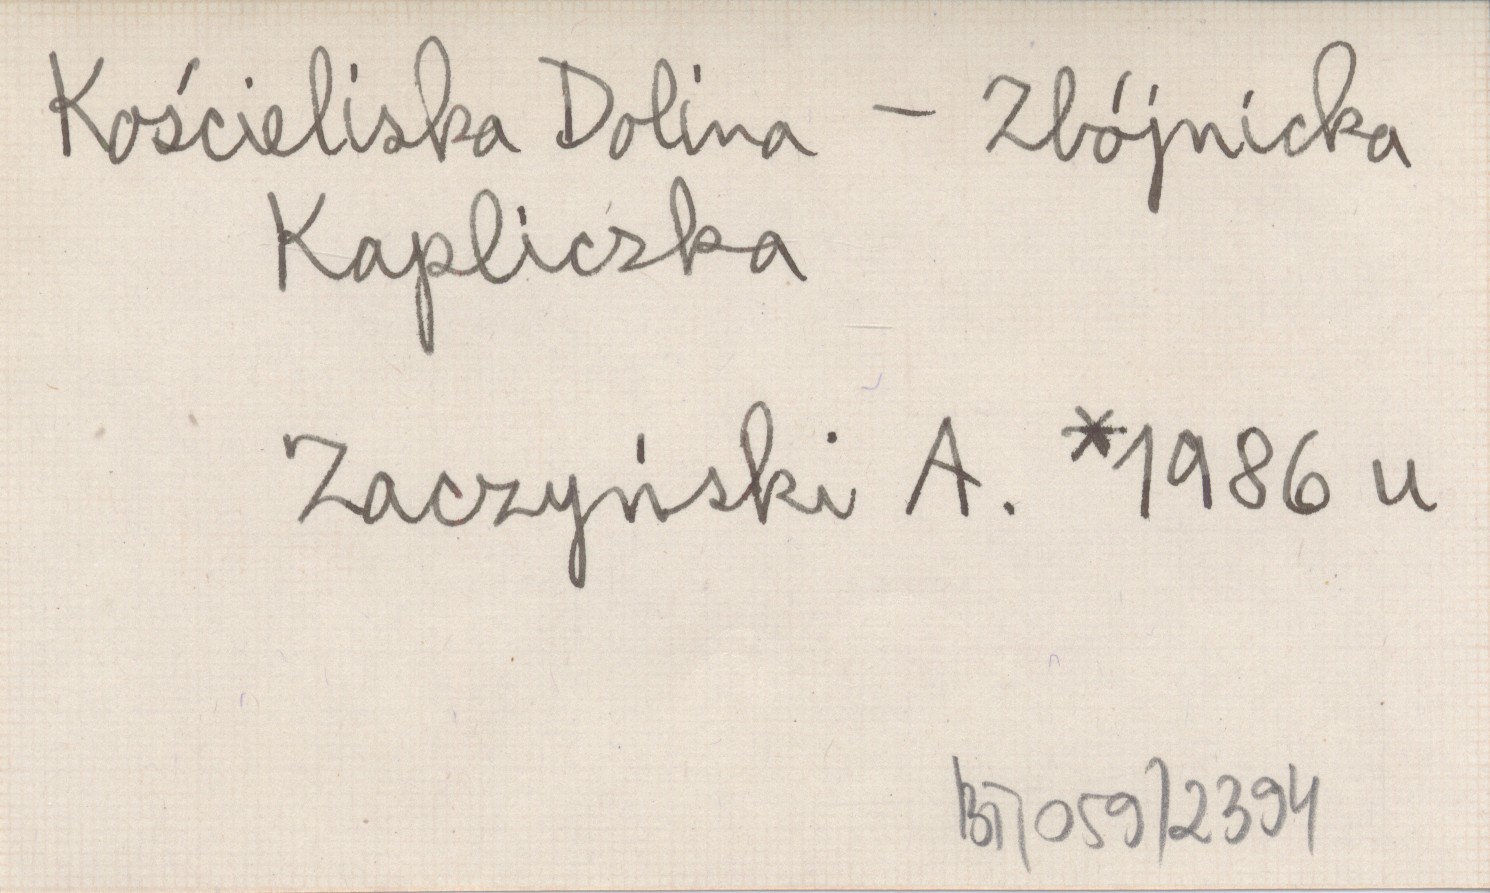 Kościeliska Dolina – Zbójnicka
Kapliczka
Zaczyński A. *1986 u
BT/059/2394